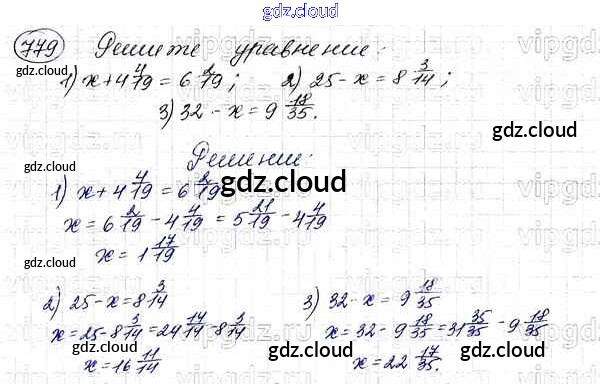 gdz.cloud
779 Решите уравнение:
1) x + 4 4/19 = 6 2/19; 2) 25 - x = 8 3/14;
3) 32 - x = 9 18/35.
Решение:
1) x + 4 4/19 = 6 2/19
x = 6 2/19 - 4 4/19 = 5 21/19 - 4 4/19
x = 1 17/19
2) 25 - x = 8 3/14
x = 25 - 8 3/14 = 24 14/14 - 8 3/14
x = 16 11/14
3) 32 - x = 9 18/35
x = 32 - 9 18/35 = 31 35/35 - 9 18/35
x = 22 17/35.
gdz.cloud
gdz.cloud
gdz.cloud
gdz.cloud
gdz.cloud
gdz.cloud
gdz.cloud
gdz.cloud
gdz.cloud